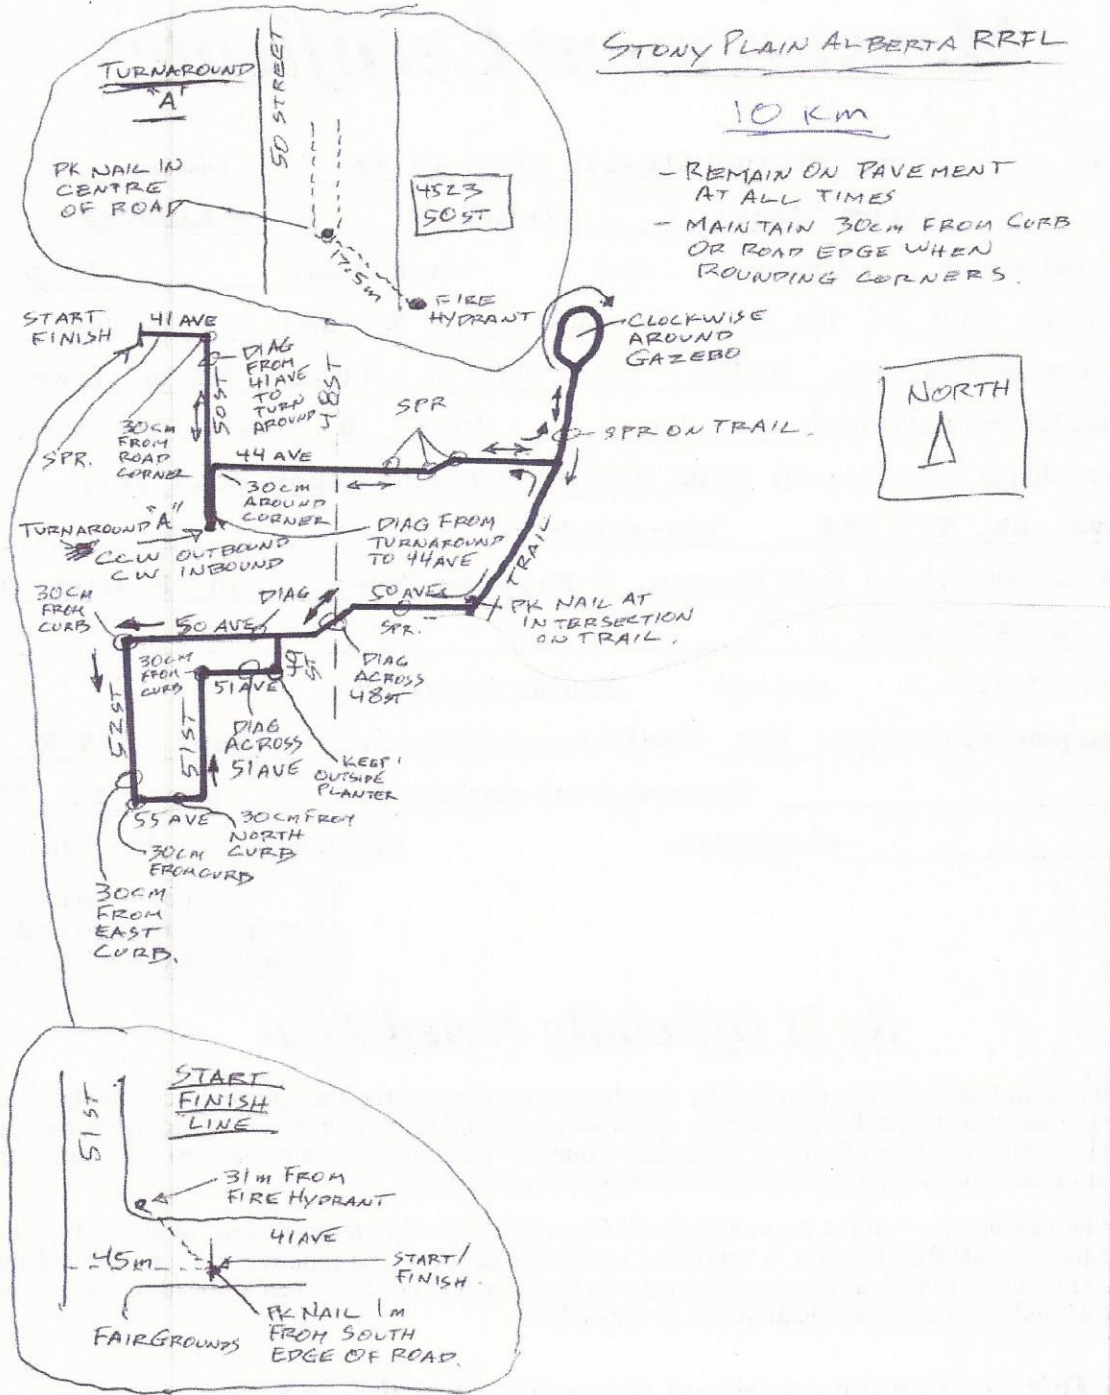 STONY PLAIN ALBERTA RRFL
10 KM
- REMAIN ON PAVEMENT
AT ALL TIMES
- MAINTAIN 30CM FROM CURB
OR ROAD EDGE WHEN
ROUNDING CORNERS.
TURNAROUND
"A"
50 STREET
PK NAIL IN
CENTRE
OF ROAD
4523
50ST
17.5m
FIRE
HYDRANT
START
FINISH
41 AVE
DIAG
FROM
41 AVE
TO
TURN
AROUND
50 ST
48ST
CLOCKWISE
AROUND
GAZEBO
NORTH
SPR
SPR ON TRAIL.
30CM
FROM
ROAD
CORNER
SPR.
44 AVE
30CM
AROUND
CORNER
TURNAROUND "A"
CCW OUTBOUND
CW INBOUND
DIAG FROM
TURNAROUND
TO 44 AVE
TRAIL
30CM
FROM
CURB
DIAG
50 AVE
50 AVE
SPR.
PK NAIL AT
INTERSECTION
ON TRAIL.
DIAG
ACROSS
48ST
49 ST
30CM
FROM
CURB
51 AVE
52 ST
51 ST
DIAG
ACROSS
51 AVE
KEEP
OUTSIDE
PLANTER
55 AVE
30CM FROM
NORTH
CURB
30CM
FROM CURB
30CM
FROM
EAST
CURB.
START
FINISH
LINE
51 ST
31m FROM
FIRE HYDRANT
41 AVE
45m
START/
FINISH.
PK NAIL 1m
FROM SOUTH
EDGE OF ROAD.
FAIRGROUNDS